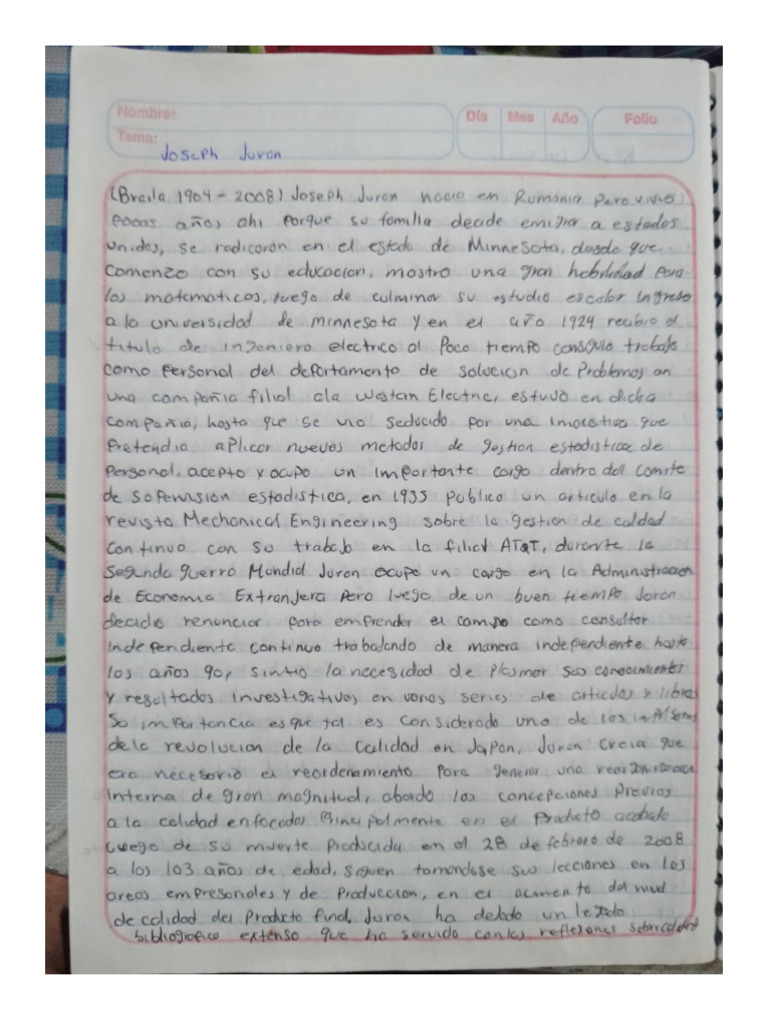 Nombre:
Día Mes Año Folio
Tema:
Joseph Juran
(Braila 1904 - 2008) Joseph Juran nacio en Rumania Para vivir
Pocos años ahi Porque su familia decide emigrar a estados
unidos, se radicaron en el estado de Minnesota, desde que
Comenzo con su educacion, mostro una gran habilidad Para
las matematicas, luego de culminar su estudio escolar Ingreso
a la universidad de minnesota y en el año 1924 recibio el
titulo de ingeniero electrico al Poco tiempo consiguio trabajo
como Personal del departamento de solucion de Problemas en
una compañia filial a la Western Electric, estuvo en dicha
compañia, hasta que se vio seducido por una iniciativa que
Pretendia aplicar nuevos metodos de gestion estadistica de
Personal, acepto y ocupo un importante cargo dentro del comite
de supervision estadistica, en 1935 Publico un articulo en la
revista Mechanical Engineering sobre la gestion de calidad
Continuo con su trabajo en la filial AT&T, durante la
Segunda guerra Mundial Juran ocupo un cargo en la Administracion
de Economia Extranjera Pero luego de un buen tiempo Juran
decide renunciar para emprender el campo como consultor
Independiente continuo trabajando de manera independiente hasta
los años 90, sintio la necesidad de Plasmar sus conocimientos
y resultados investigativos en varias series de articulos y libros
Su importancia es que tal es considerado uno de los
de la revolucion de la Calidad en Japon, Juran creia que
era necesario el reordenamiento Para generar una reorganizacion
Interna de gran magnitud, abordo las concepciones Previas
a la calidad enfocadas Principalmente en el Producto acabado
Luego de su muerte Producida en el 28 de febrero de 2008
a los 103 años de edad, siguen tomandose sus lecciones en las
areas empresariales y de Produccion, en el aumento del nivel
de calidad del Producto final, Juran ha dejado un legado
bibliografico extenso que ha servido con las reflexiones sobre calidad